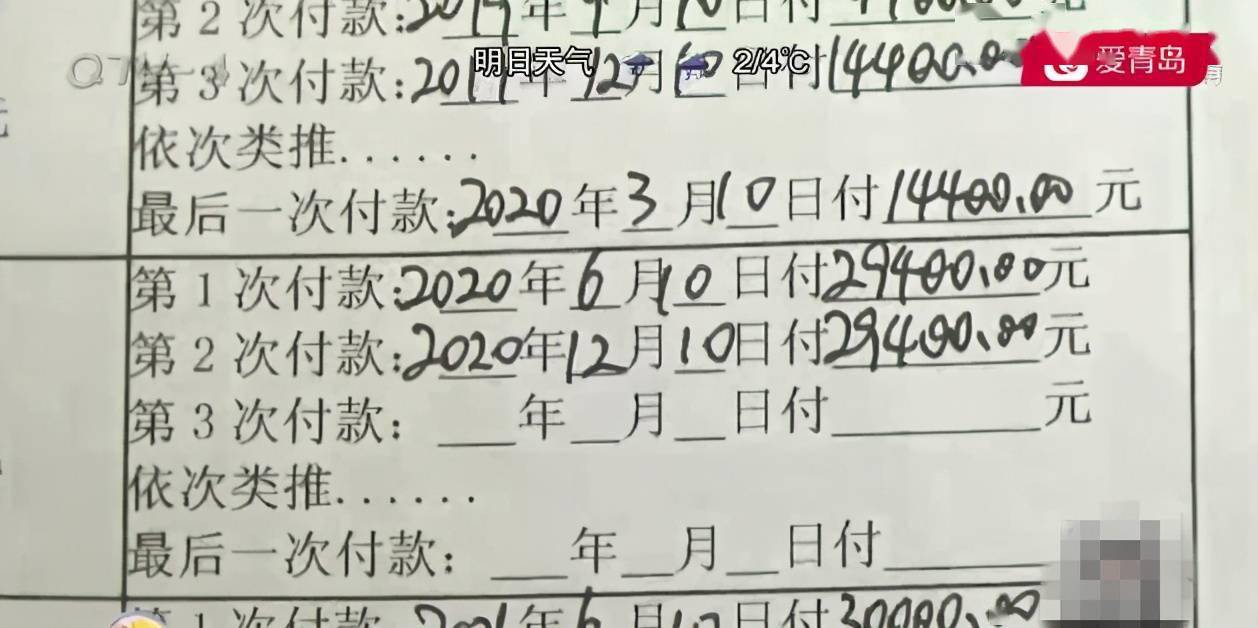 第2次付款:2019年9月10日付
明日天气 2/4℃
爱青岛
第3次付款:2019年12月10日付14400.00
依次类推......
最后一次付款:2020年3月10日付14400.00元
第1次付款:2020年6月10日付29400.00元
第2次付款:2020年12月10日付29400.00元
第3次付款: ___年__月__日付________元
依次类推......
最后一次付款: ___年__月__日付______
第1次付款:2021年6月10日付30000.00